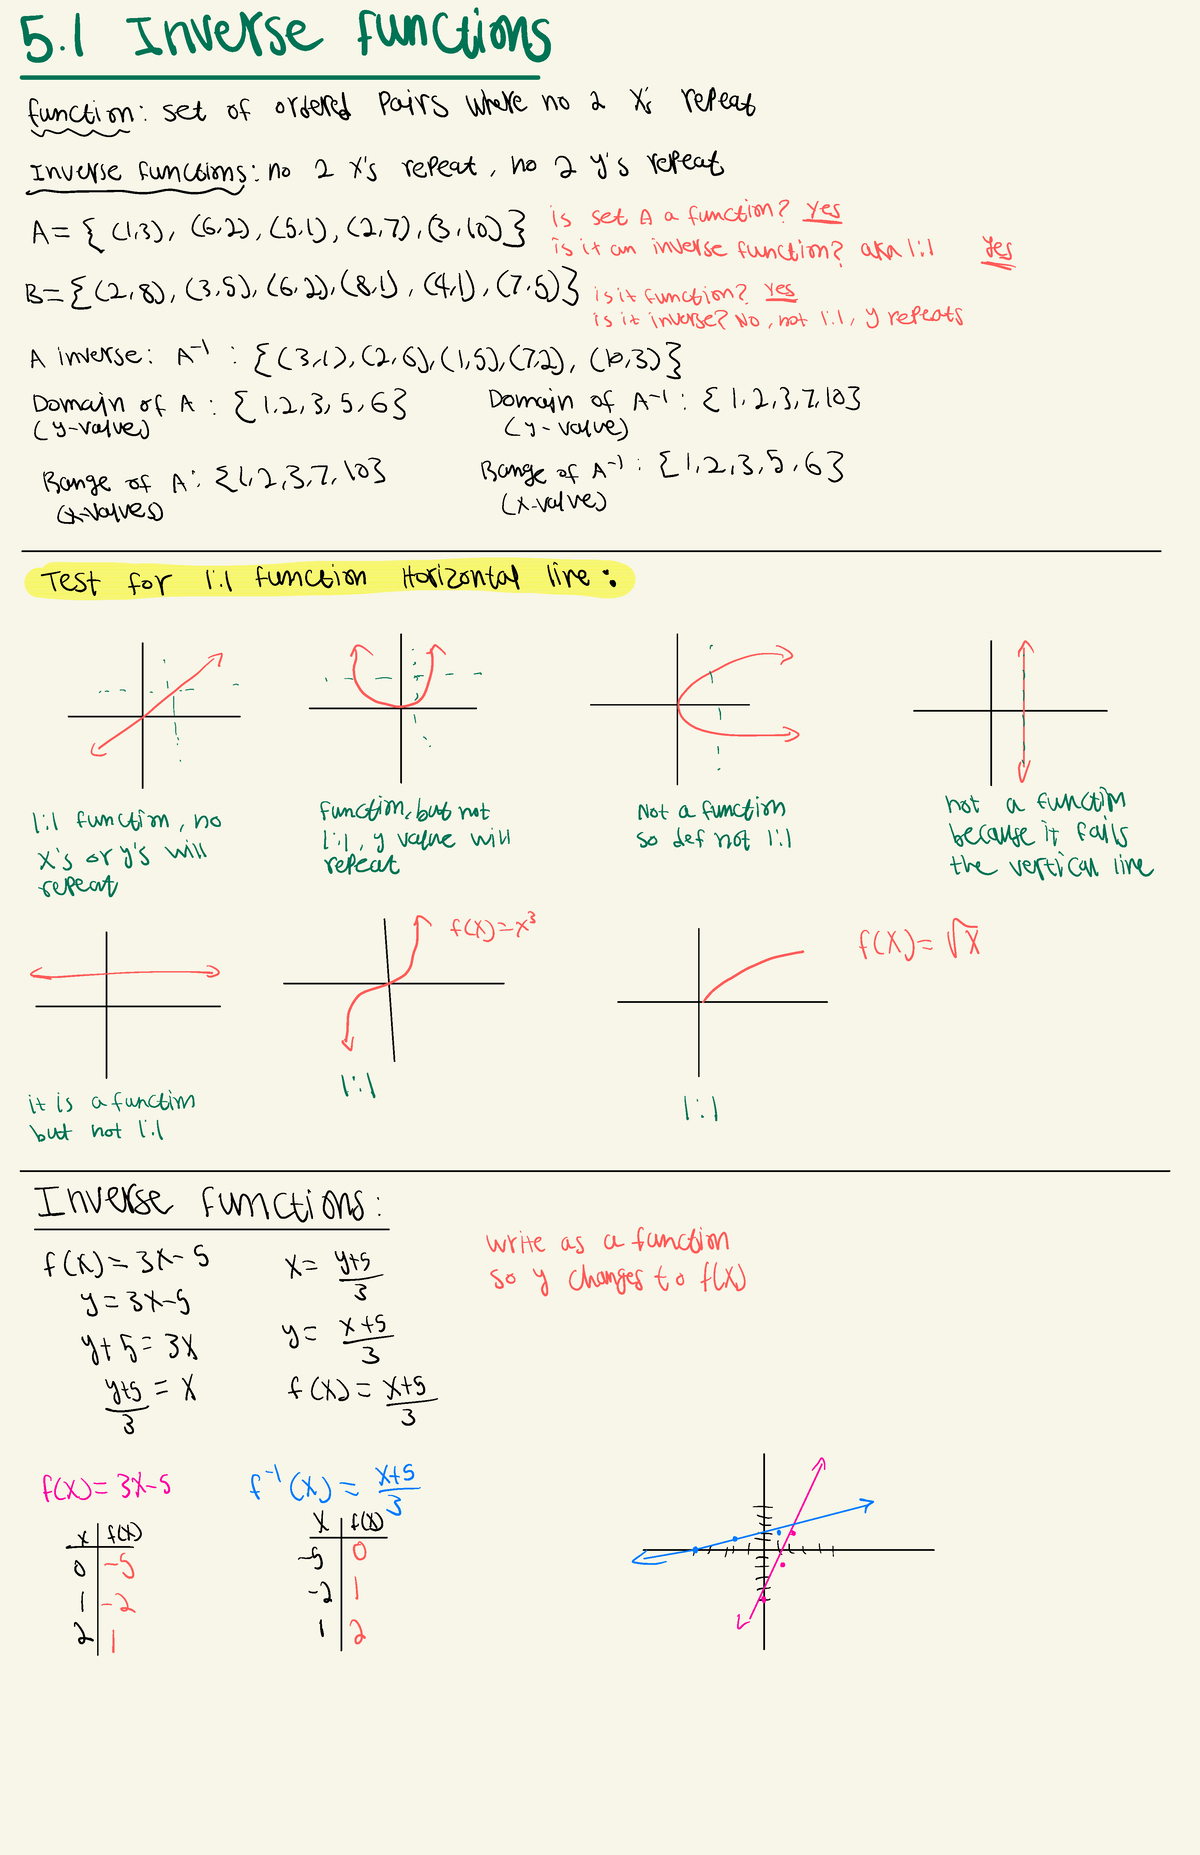 5.1 Inverse functions
function: set of ordered pairs where no 2 x's repeat
Inverse functions: no 2 x's repeat, no 2 y's repeat
A = { (1,3), (6,2), (5,1), (2,7), (3,10) }
is set A a function? yes
is it an inverse function? aka 1:1 yes
B = { (2,8), (3,5), (6,2), (8,1), (4,1), (7,5) }
is it function? yes
is it inverse? No, not 1:1, y repeats
A inverse: A⁻¹ : { (3,1), (2,6), (1,5), (7,2), (10,3) }
Domain of A : { 1,2,3,5,6 }
(y-value)
Domain of A⁻¹ : { 1,2,3,7,10 }
(y-value)
Range of A : { 1,2,3,7,10 }
(x-values)
Range of A⁻¹ : { 1,2,3,5,6 }
(x-value)
Test for 1:1 function Horizontal line :
1:1 function, no
x's or y's will
repeat
function, but not
1:1, y value will
repeat
Not a function
so def not 1:1
not a function
because it fails
the vertical line
it is a function
but not 1:1
f(x)=x³
1:1
f(x)= √x
1:1
Inverse functions:
f(x) = 3x-5
y = 3x-5
y+5 = 3x
y+5/3 = x
x = y+5/3
y = x+5/3
f(x) = x+5/3
write as a function
so y changes to f(x)
f(x) = 3x-5
x | f(x)
0 | -5
1 | -2
2 | 1
f⁻¹(x) = x+5/3
x | f(x)
-5 | 0
-2 | 1
1 | 2